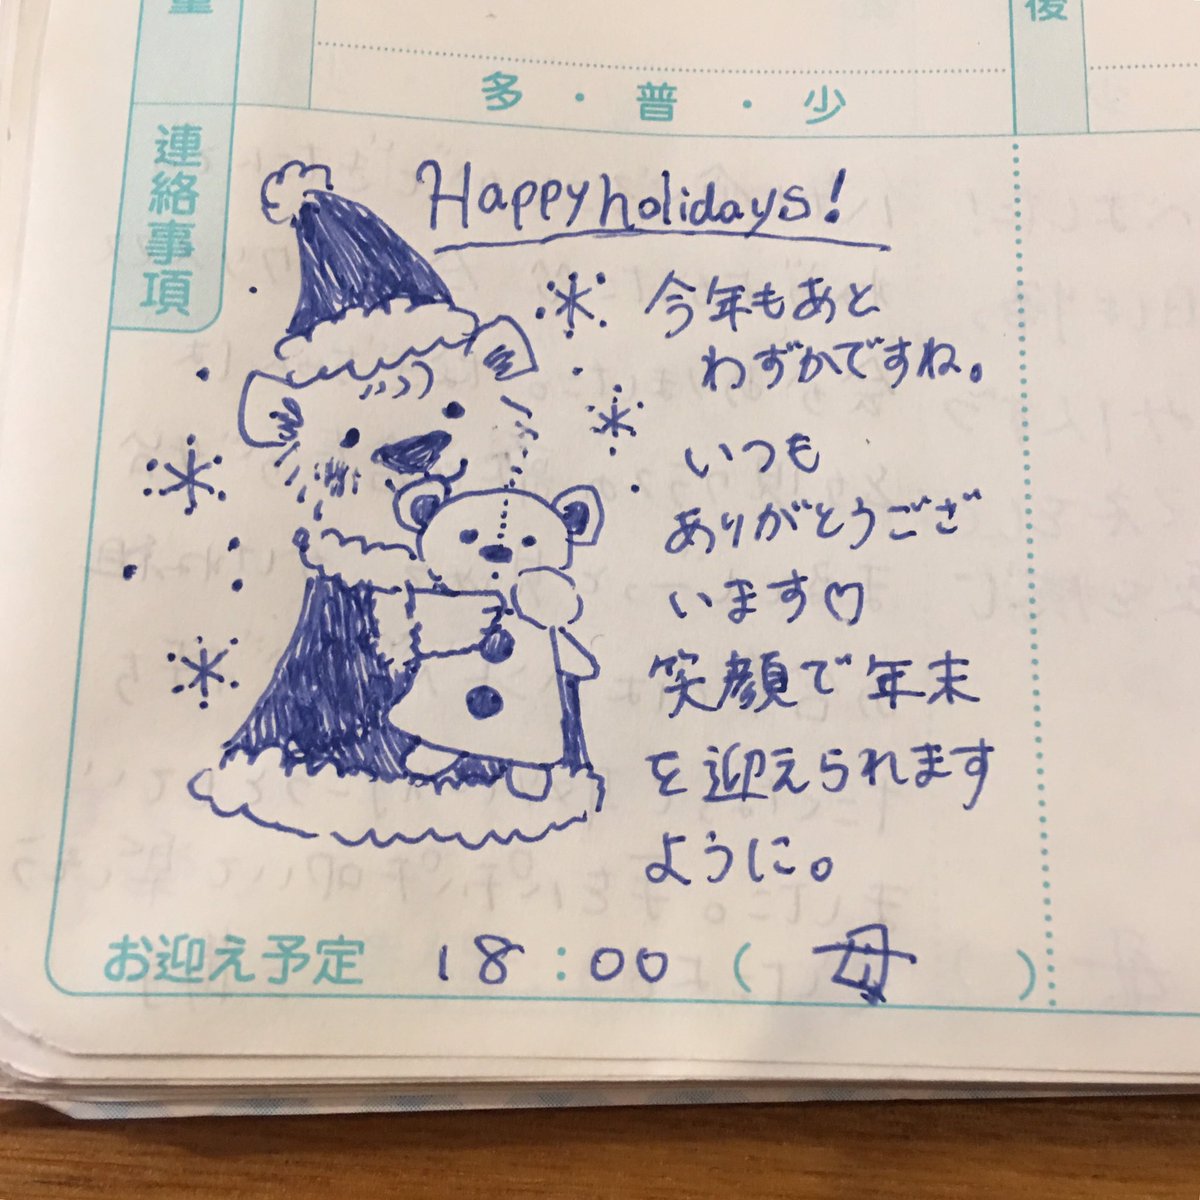 量
後
多・普・少
連絡事項
Happy holidays!
今年もあと
わずかですね。
いつも
ありがとうござ
います♡
笑顔で年末
を迎えられます
ように。
お迎え予定 18:00(母)